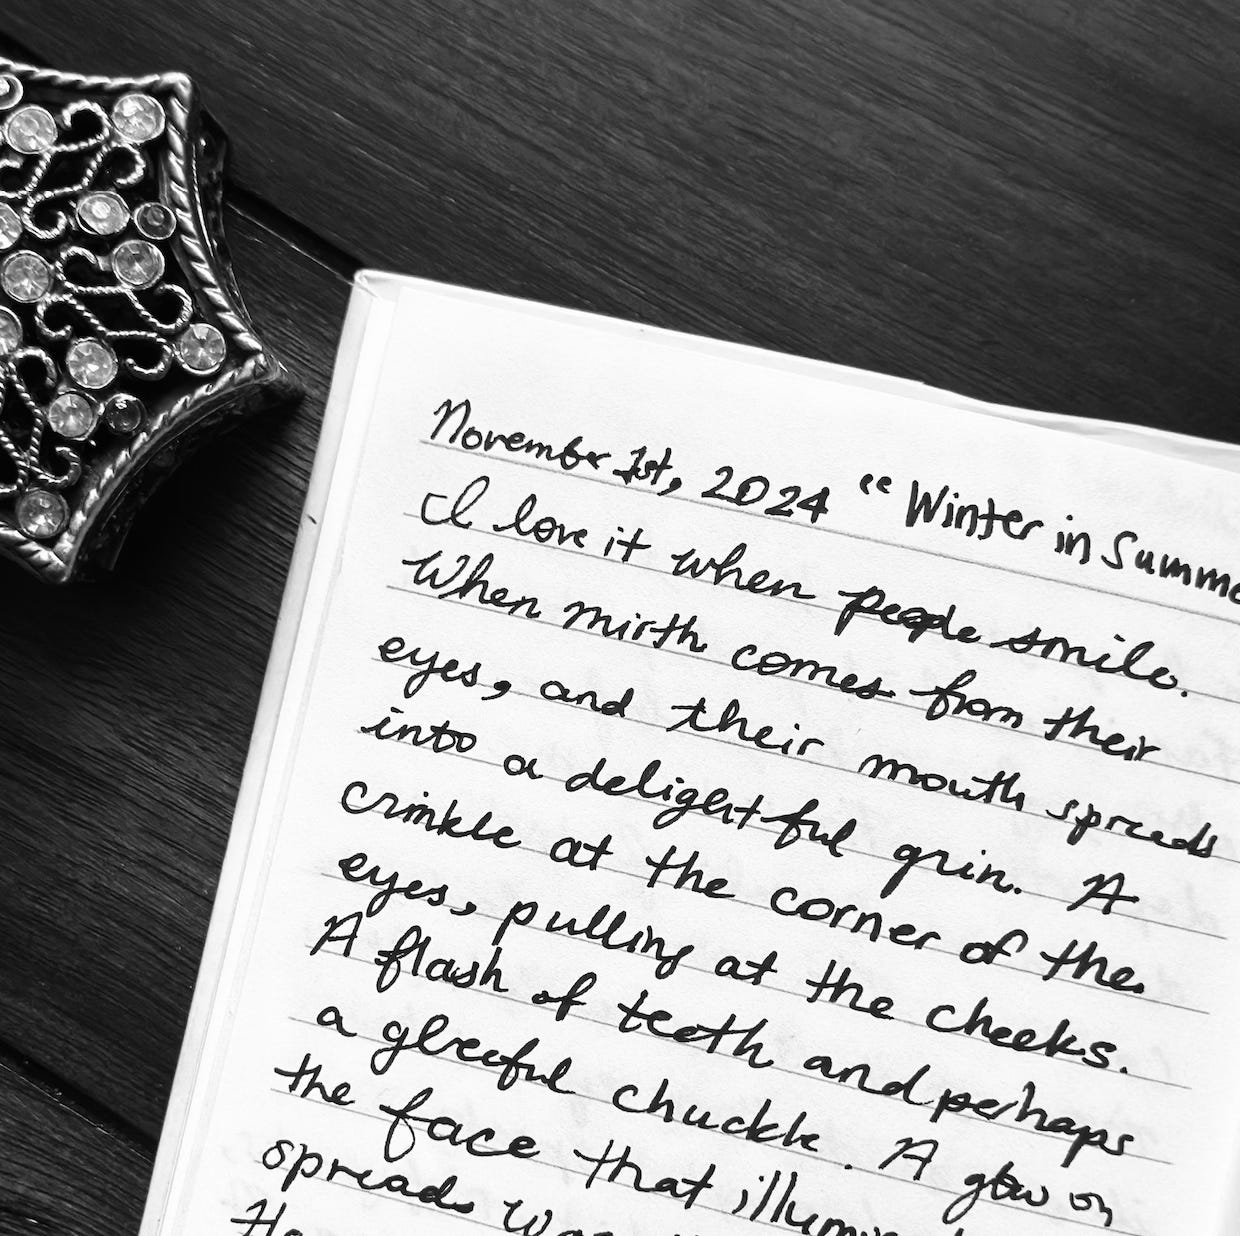 November 1st, 2024 "Winter in Summe
I love it when people smile.
When mirth comes from their
eyes, and their mouth spreads
into a delightful grin. A
crinkle at the corner of the
eyes, pulling at the cheeks.
A flash of teeth and perhaps
a gleeful chuckle. A glow on
the face that illumi
spreads wa